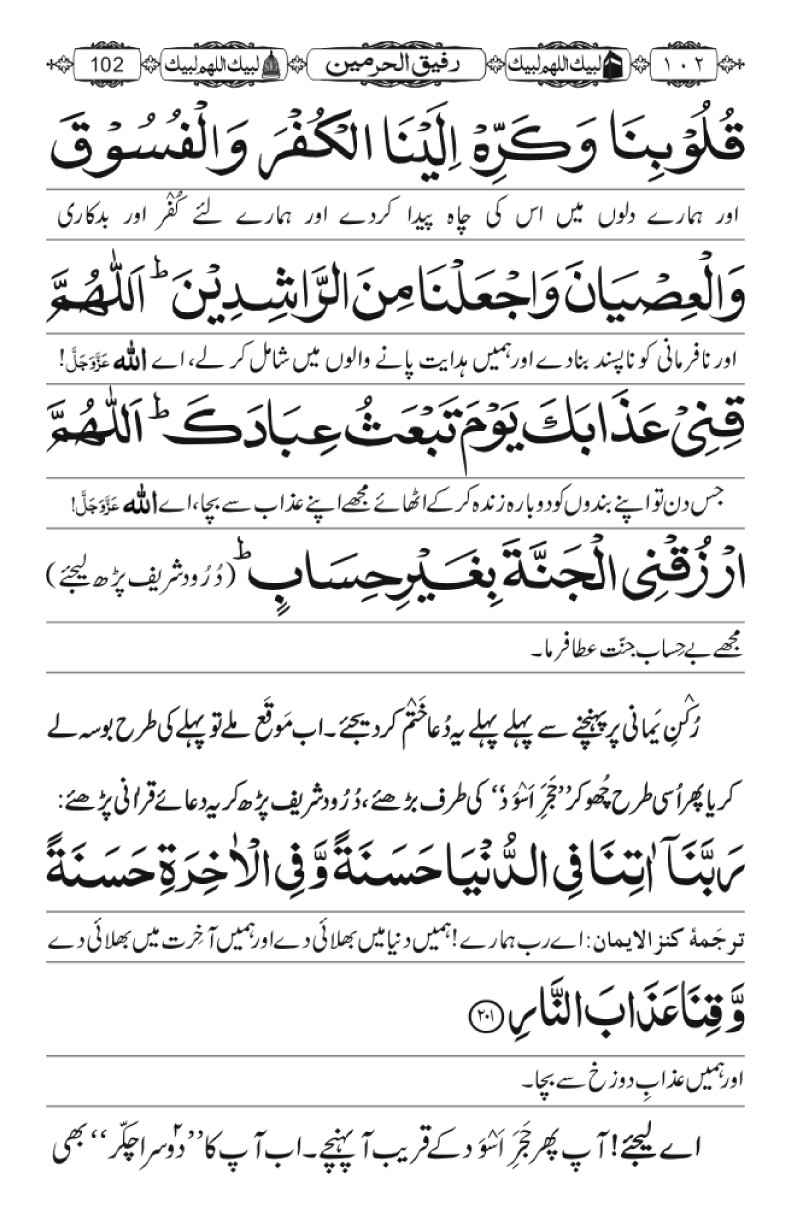 ۱۰۲ لبیك اللھم لبیك رفیق الحرمین لبیك اللھم لبیك 102
قُلُوْبِنَا وَكَرِّهْ اِلَيْنَا الْكُفْرَ وَالْفُسُوْقَ
اور ہمارے دلوں میں اس کی چاہ پیدا کردے اور ہمارے لئے کُفْر اور بدکاری
وَالْعِصْيَانَ وَاجْعَلْنَا مِنَ الرَّاشِدِيْنَ ؕ اَللّٰهُمَّ
اور نافرمانی کو ناپسند بنادے اورہمیں ہدایت پانے والوں میں شامل کر لے، اے اللّٰه عَزَّوَجَلَّ!
قِنِيْ عَذَابَكَ يَوْمَ تَبْعَثُ عِبَادَكَ ؕ اَللّٰهُمَّ
جس دن تو اپنے بندوں کو دوبارہ زندہ کرکے اٹھائے مجھے اپنے عذاب سے بچا، اے اللّٰه عَزَّوَجَلَّ!
ارْزُقْنِي الْجَنَّةَ بِغَيْرِ حِسَابٍ ؕ (دُرُود شریف پڑھ لیجئے)
مجھے بے حِساب جنّت عطا فرما۔
رُکْنِ یَمانی پر پہنچنے سے پہلے پہلے یہ دُعا خَتْم کر دیجئے۔ اب مَوقَع ملے تو پہلے کی طرح بوسہ لے
کر یا پھر اُسی طرح چُھو کر ’’حَجَرِ اَسْوَد‘‘ کی طرف بڑھئے، دُرُود شریف پڑھ کر یہ دعائے قرانی پڑھئے:
رَبَّنَاۤ اٰتِنَا فِي الدُّنْيَا حَسَنَةً وَّ فِي الْاٰخِرَةِ حَسَنَةً
ترجَمۂ کنز الایمان: اے رب ہمارے! ہمیں دنیا میں بھلائی دے اور ہمیں آخِرت میں بھلائی دے
وَّ قِنَا عَذَابَ النَّارِ ﴿۲۰۱﴾
اور ہمیں عذابِ دوزخ سے بچا۔
اے لیجئے! آپ پھر حَجَرِ اَسْوَد کے قریب آ پہنچے۔ اب آپ کا ’’دوسرا ۲ چکّر‘‘ بھی